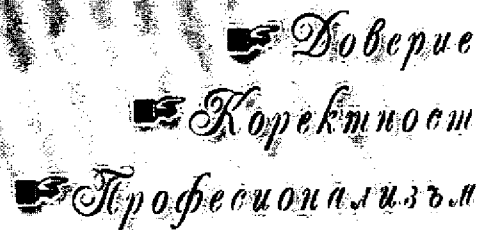 Доверие
Коректност
Професионализъм